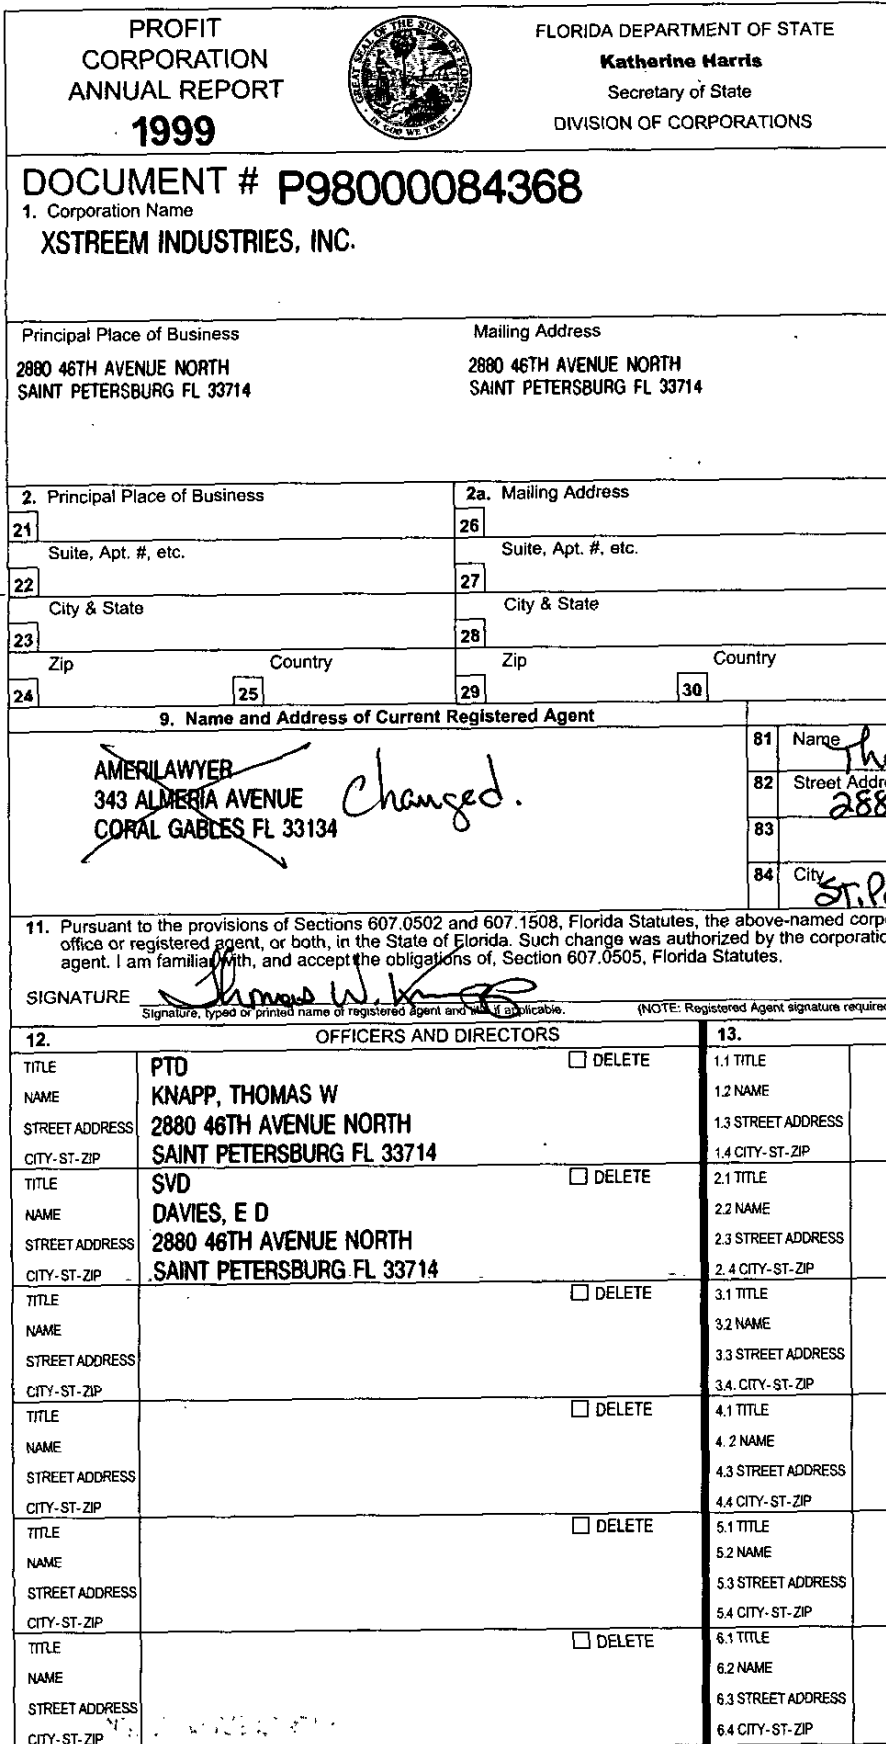 PROFIT
CORPORATION
ANNUAL REPORT
1999
GREAT SEAL OF THE STATE OF FLORIDA
IN GOD WE TRUST
FLORIDA DEPARTMENT OF STATE
Katherine Harris
Secretary of State
DIVISION OF CORPORATIONS
DOCUMENT # P98000084368
1. Corporation Name
XSTREEM INDUSTRIES, INC.
Principal Place of Business
2880 46TH AVENUE NORTH
SAINT PETERSBURG FL 33714
Mailing Address
2880 46TH AVENUE NORTH
SAINT PETERSBURG FL 33714
2. Principal Place of Business
21
Suite, Apt. #, etc.
22
City & State
23
Zip Country
24 25
2a. Mailing Address
26
Suite, Apt. #, etc.
27
City & State
28
Zip Country
29 30
9. Name and Address of Current Registered Agent
AMERILAWYER
343 ALMERIA AVENUE
CORAL GABLES FL 33134
Changed.
81 Name
Th
82 Street Addre
288
83
84 City
ST. Pe
11. Pursuant to the provisions of Sections 607.0502 and 607.1508, Florida Statutes, the above-named corp
office or registered agent, or both, in the State of Florida. Such change was authorized by the corporatio
agent. I am familiar with, and accept the obligations of, Section 607.0505, Florida Statutes.
SIGNATURE Thomas W. Knapp
Signature, typed or printed name of registered agent and title if applicable. (NOTE: Registered Agent signature required
12. OFFICERS AND DIRECTORS 13.
TITLE PTD DELETE 1.1 TITLE
NAME KNAPP, THOMAS W 1.2 NAME
STREET ADDRESS 2880 46TH AVENUE NORTH 1.3 STREET ADDRESS
CITY-ST-ZIP SAINT PETERSBURG FL 33714 1.4 CITY-ST-ZIP
TITLE SVD DELETE 2.1 TITLE
NAME DAVIES, E D 2.2 NAME
STREET ADDRESS 2880 46TH AVENUE NORTH 2.3 STREET ADDRESS
CITY-ST-ZIP SAINT PETERSBURG FL 33714 2.4 CITY-ST-ZIP
TITLE DELETE 3.1 TITLE
NAME 3.2 NAME
STREET ADDRESS 3.3 STREET ADDRESS
CITY-ST-ZIP 3.4. CITY-ST-ZIP
TITLE DELETE 4.1 TITLE
NAME 4.2 NAME
STREET ADDRESS 4.3 STREET ADDRESS
CITY-ST-ZIP 4.4 CITY-ST-ZIP
TITLE DELETE 5.1 TITLE
NAME 5.2 NAME
STREET ADDRESS 5.3 STREET ADDRESS
CITY-ST-ZIP 5.4 CITY-ST-ZIP
TITLE DELETE 6.1 TITLE
NAME 6.2 NAME
STREET ADDRESS 6.3 STREET ADDRESS
CITY-ST-ZIP 6.4 CITY-ST-ZIP